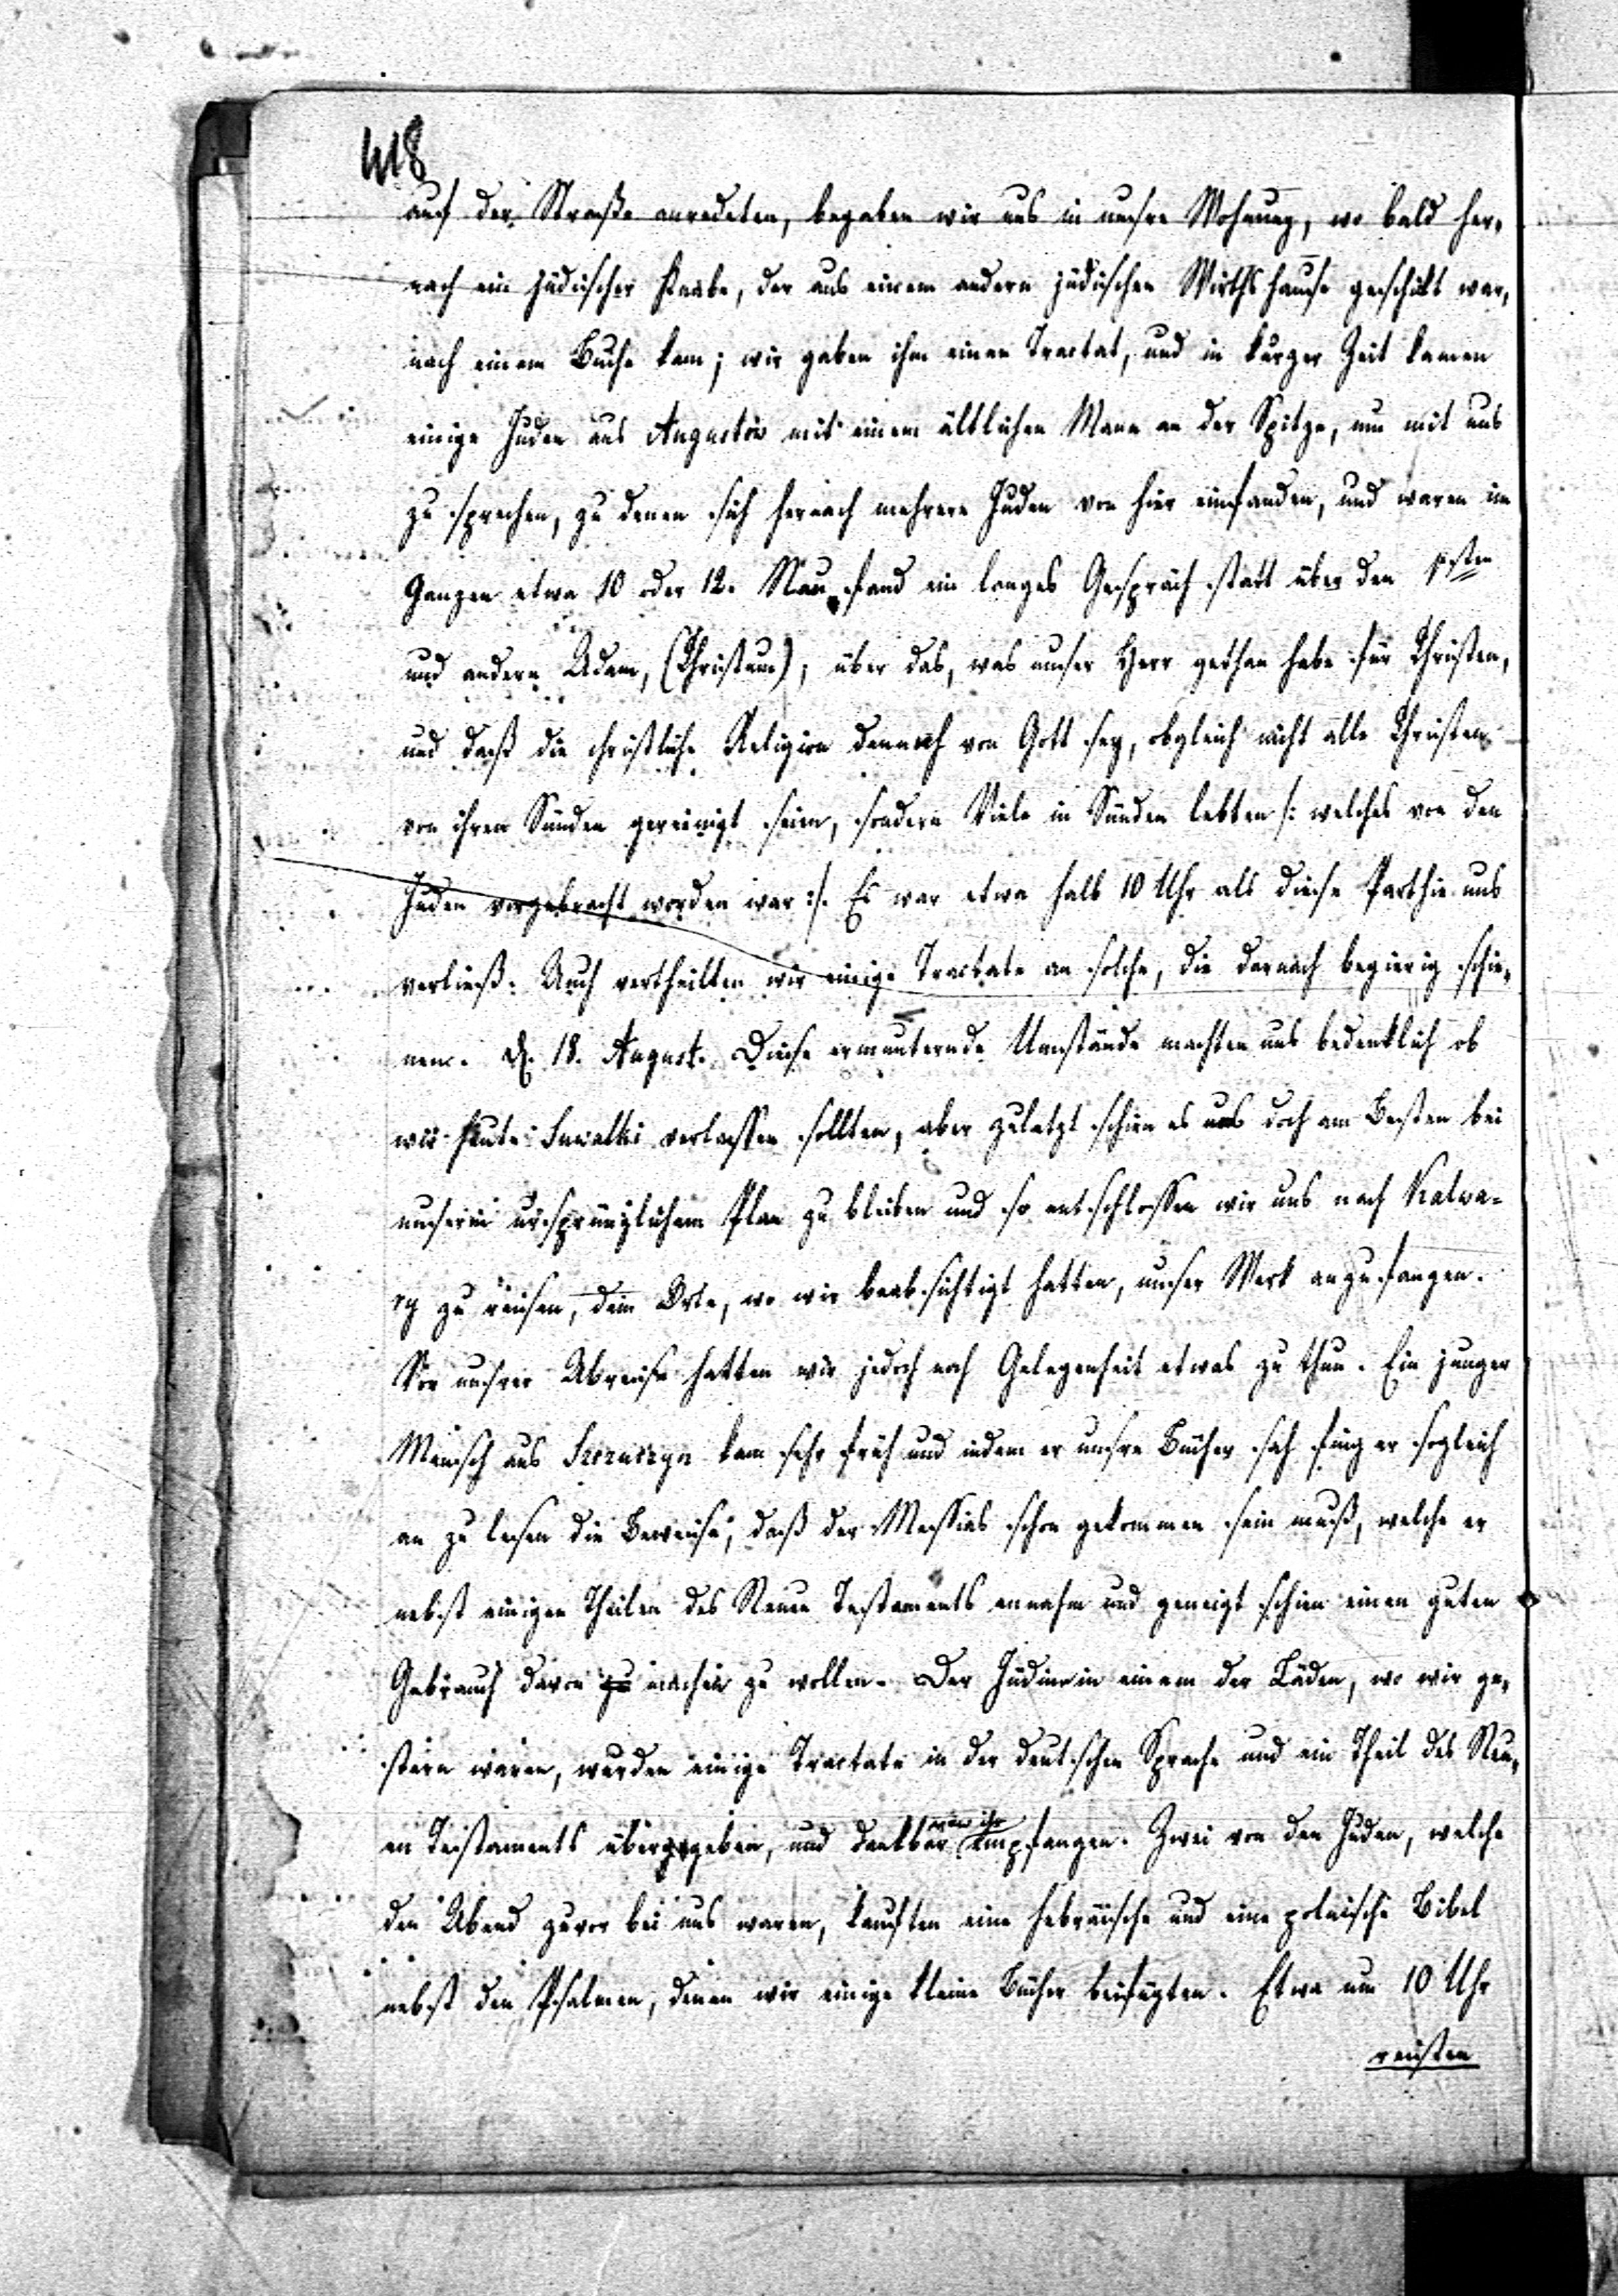 418
auf der Straße anredeten, begaben wir uns in unsre Wohnung, wo bald her-
nach ein jüdischer Knabe, der aus einem andern jüdischen Wirthshause geschickt war,
nach einem Buche kam; wir gaben ihm einen Tractat, und in kurzer Zeit kamen
einige Juden aus Augustów mit einem ältlichen Mann an der Spitze, um mit uns
zu sprechen, zu denen sich hernach mehrere Juden von hier einfanden, und waren im
Ganzen etwa 10 oder 12. Nun fand ein langes Gespräch statt über den 1sten
und andern Adam, (Christum); über das, was unser Herr gethan habe für Christen,
und daß die christliche Religion dennoch von Gott sey, obgleich nicht alle Christen
von ihren Sünden gereinigt seien, sondern Viele in Sünden lebten /: welches von den
Juden vorgebracht worden war :/. Es war etwa halb 10 Uhr als diese Parthie uns
verließ. Auch vertheilten wir einige Tractate an solche, die darnach begierig schie-
nen. d. 18. August. Diese ermunternde Umstände machten uns bedenklich ob
wir heute Suwalki verlassen sollten, aber zuletzt schien es uns doch am Besten bei
unserm ursprünglichem Plan zu bleiben und so entschlossen wir uns nach Kalwa-
ry zu reisen, dem Orte, wo wir beabsichtigt hatten, unser Werk anzufangen.
Vor unsrer Abreise hatten wir jedoch noch Gelegenheit etwas zu thun. Ein junger
Mensch aus Szczuczyn kam sehr früh und indem er unsre Bücher sah fing er sogleich
an zu lesen die Beweise, daß der Messias schon gekommen sein muß, welche er
nebst einigen Theilen des Neuen Testaments annahm und geneigt schien einen guten
Gebrauch davon zu machen zu wollen. Der Jüdin in einem der Läden, wo wir ge-
stern waren, wurden einige Tractate in der deutschen Sprache und ein Theil des Neu-
en Testaments übergegeben, und dankbar von ihr empfangen. Zwei von den Juden, welche
den Abend zuvor bei uns waren, kauften eine hebräische und eine polnische Bibel
nebst den Psalmen, denen wir einige kleine Bücher beifügten. Etwa um 10 Uhr
reisten